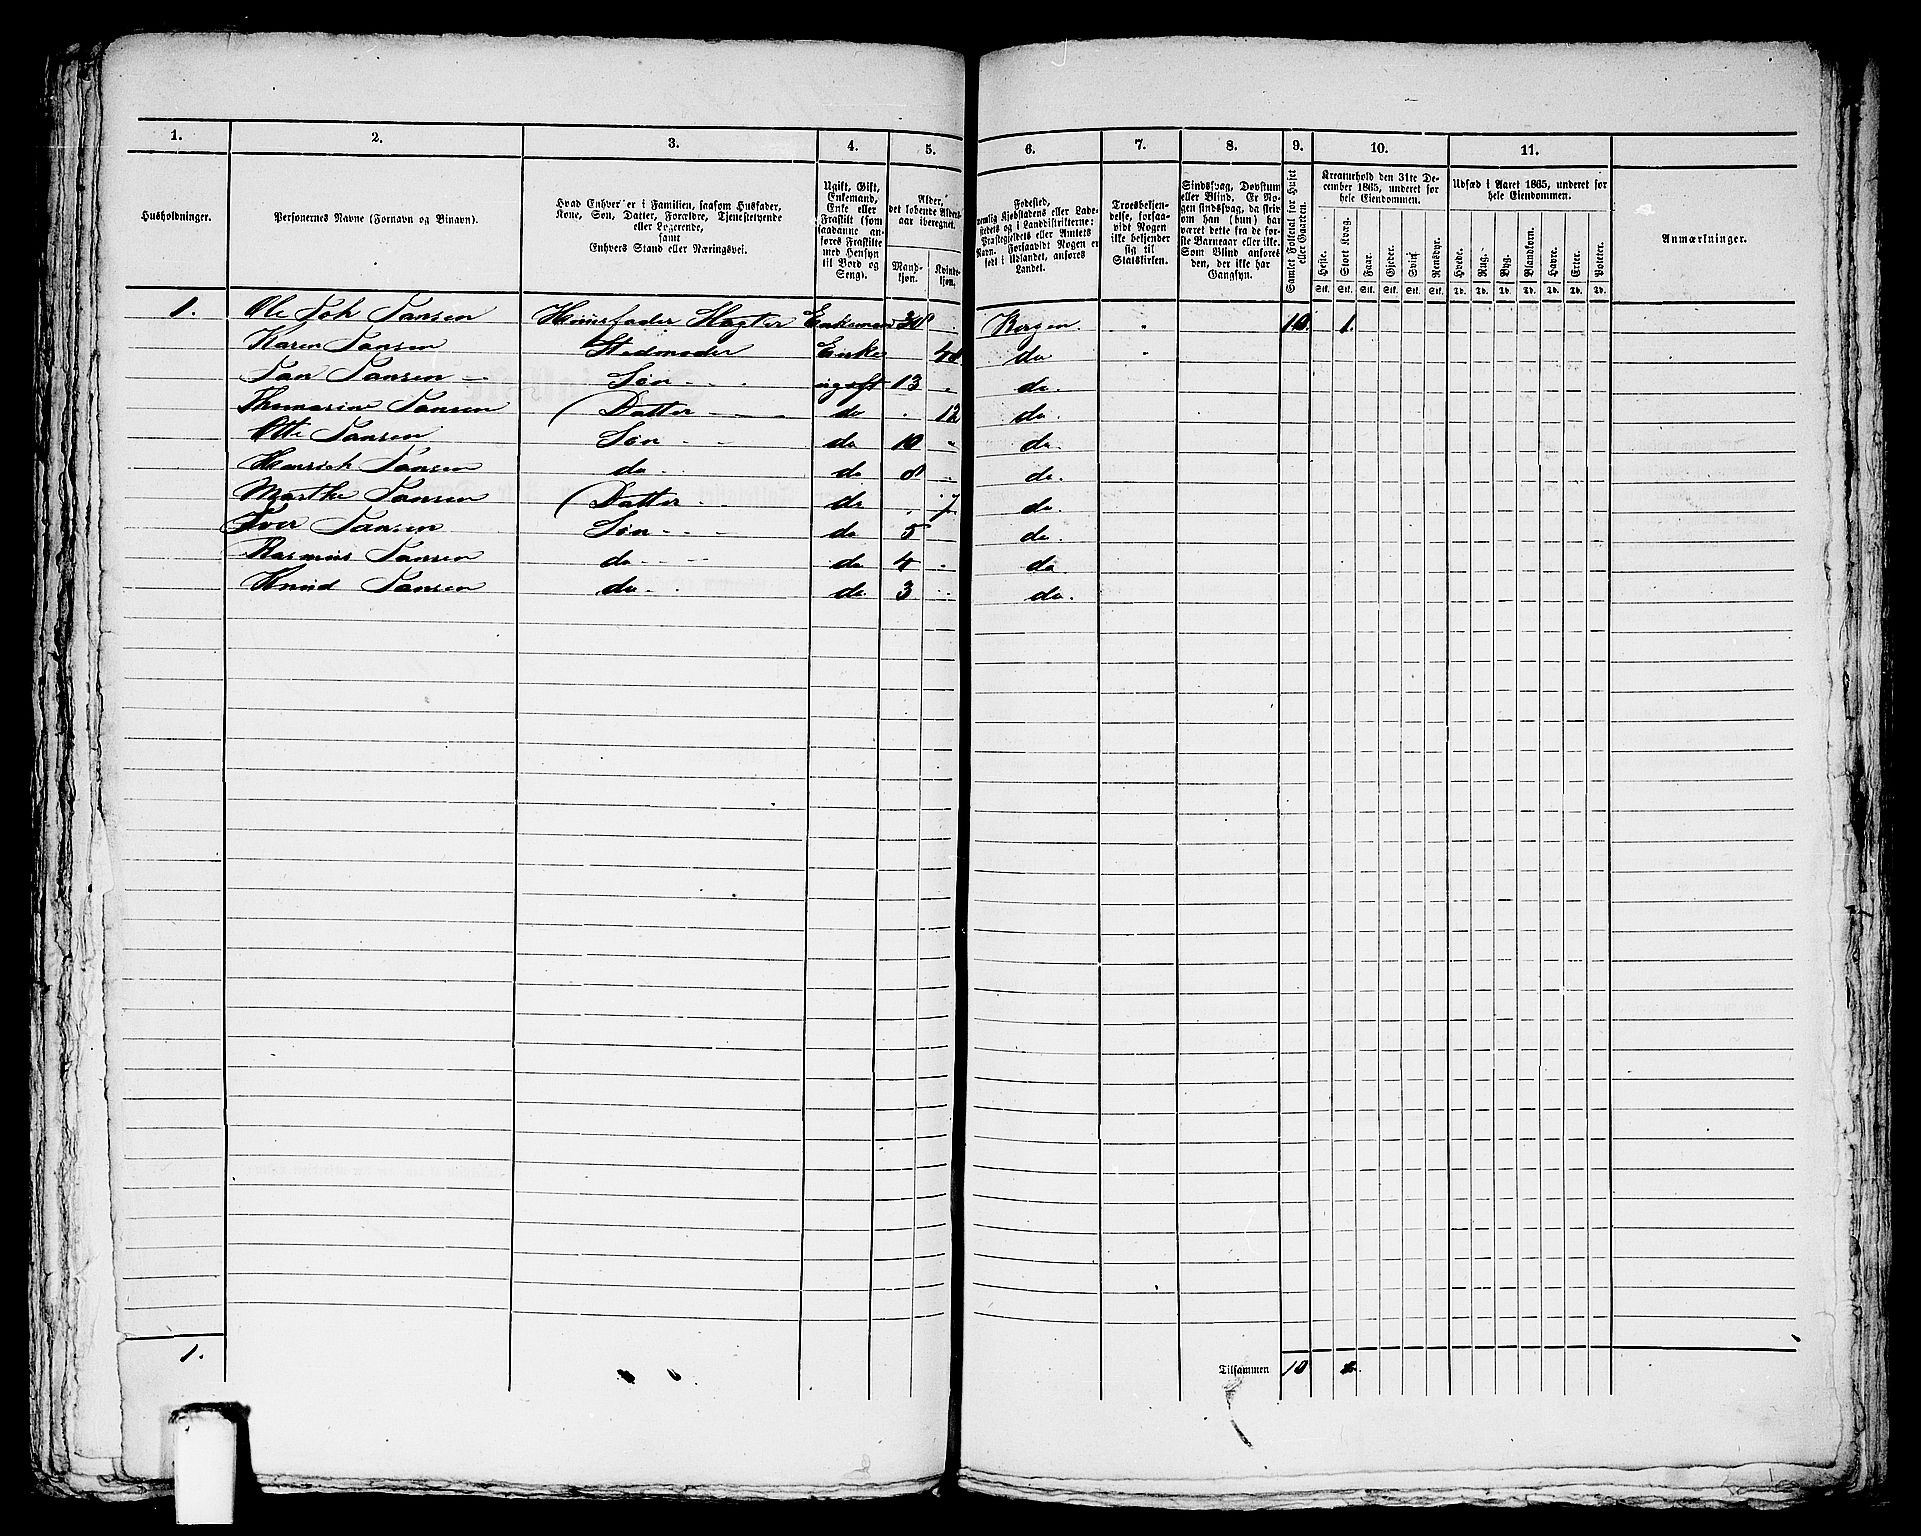 1. 2. 3. 4. 5. 6. 7. 8. 9. 10. 11.
Husholdninger.
Personernes Navne (Fornavn og Binavn).
Hvad Enhver er i Familien, saasom Husfader,
Kone, Søn, Datter, Forældre, Tjenestetyende
eller Logerende,
samt
Enhvers Stand eller Næringsvei.
Ugift, Gift,
Enkemand,
Enke eller
Fraskilt (som
saadanne an-
føres Fraskilte
med Hensyn
til Bord og
Seng).
Alder,
det løbende Alders-
aar iberegnet.
Mand-
kjøn.
Kvind-
kjøn.
Fødested,
nemlig Kjøbstadens eller Lade-
stedets og i Landdistrikterne:
Præstegjeldets eller Amtets
Navn. Forsaavidt Nogen er
født i Udlandet, anføres
Landet.
Troesbekjen-
delse, forsaa-
vidt Nogen
ikke bekjender
sig til
Statskirken.
Sindssvag, Døvstum
eller Blind. Er No-
gen sindssvag, da skriv
om han (hun) har
været dette fra de før-
ste Barneaar eller ikke.
Som Blind anføres
den, der ikke har
Gangsyn.
Samlet Folketal for Huset
eller Gaarden.
Kreaturhold den 31te De-
cember 1865, underet for
hele Eiendommen.
Heste. Stort Kvæg. Faar. Gjeder. Sviin. Rensdyr.
Stk. Stk. Stk. Stk. Stk. Stk.
Udsæd i Aaret 1865, underet for
hele Eiendommen.
Hvede. Rug. Byg. Blandkorn. Havre. Erter. Poteter.
Td. Td. Td. Td. Td. Td. Td.
Anmærkninger.
1. Ole Joh Jansen Huusfader Slagter Enkemand 38 Bergen. 10. 1.
Karen Jansen Stedmoder Enke do
Jan Jansen Søn ugift 13 do.
Thomasine Jansen Datter do 12 do.
Otto Jansen Søn do 10 do.
Henrich Jansen do do 8 do.
Marthe Jansen Datter do 7 do.
Iver Jansen Søn do 5 do.
Rasmus Jansen do do 4 do
Knud Jansen do do 3 do.
1. Tilsammen 10